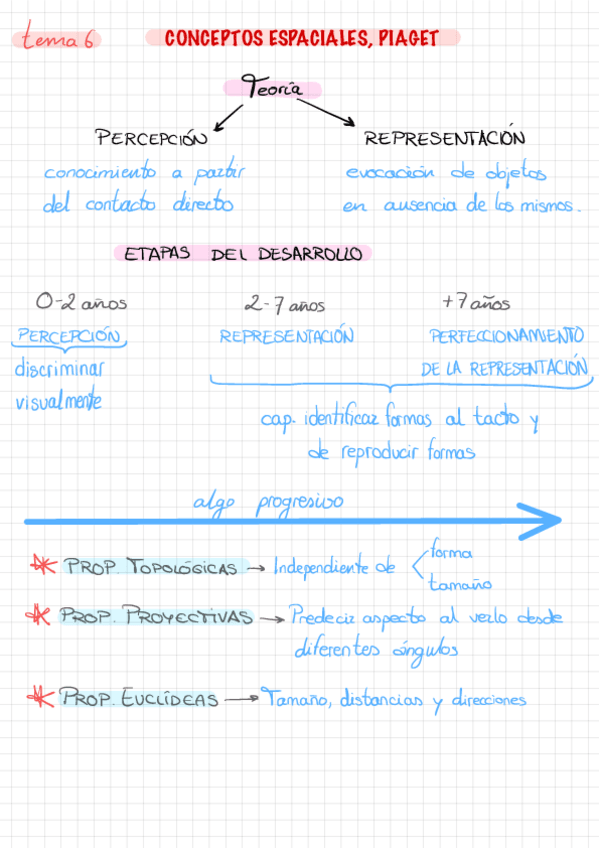 tema 6
CONCEPTOS ESPACIALES, PIAGET
Teoría
PERCEPCIÓN
REPRESENTACIÓN
conocimiento a partir
del contacto directo
evocación de objetos
en ausencia de los mismos.
ETAPAS DEL DESARROLLO
0-2 años
2-7 años
+7 años
PERCEPCIÓN
REPRESENTACIÓN
PERFECCIONAMIENTO
DE LA REPRESENTACIÓN
discriminar
visualmente
cap. identificar formas al tacto y
de reproducir formas
algo progresivo
* PROP. TOPOLÓGICAS → Independiente de
forma
tamaño
* PROP. PROYECTIVAS → Predecir aspecto al verlo desde
diferentes ángulos
* PROP. EUCLÍDEAS → Tamaño, distancias y direcciones